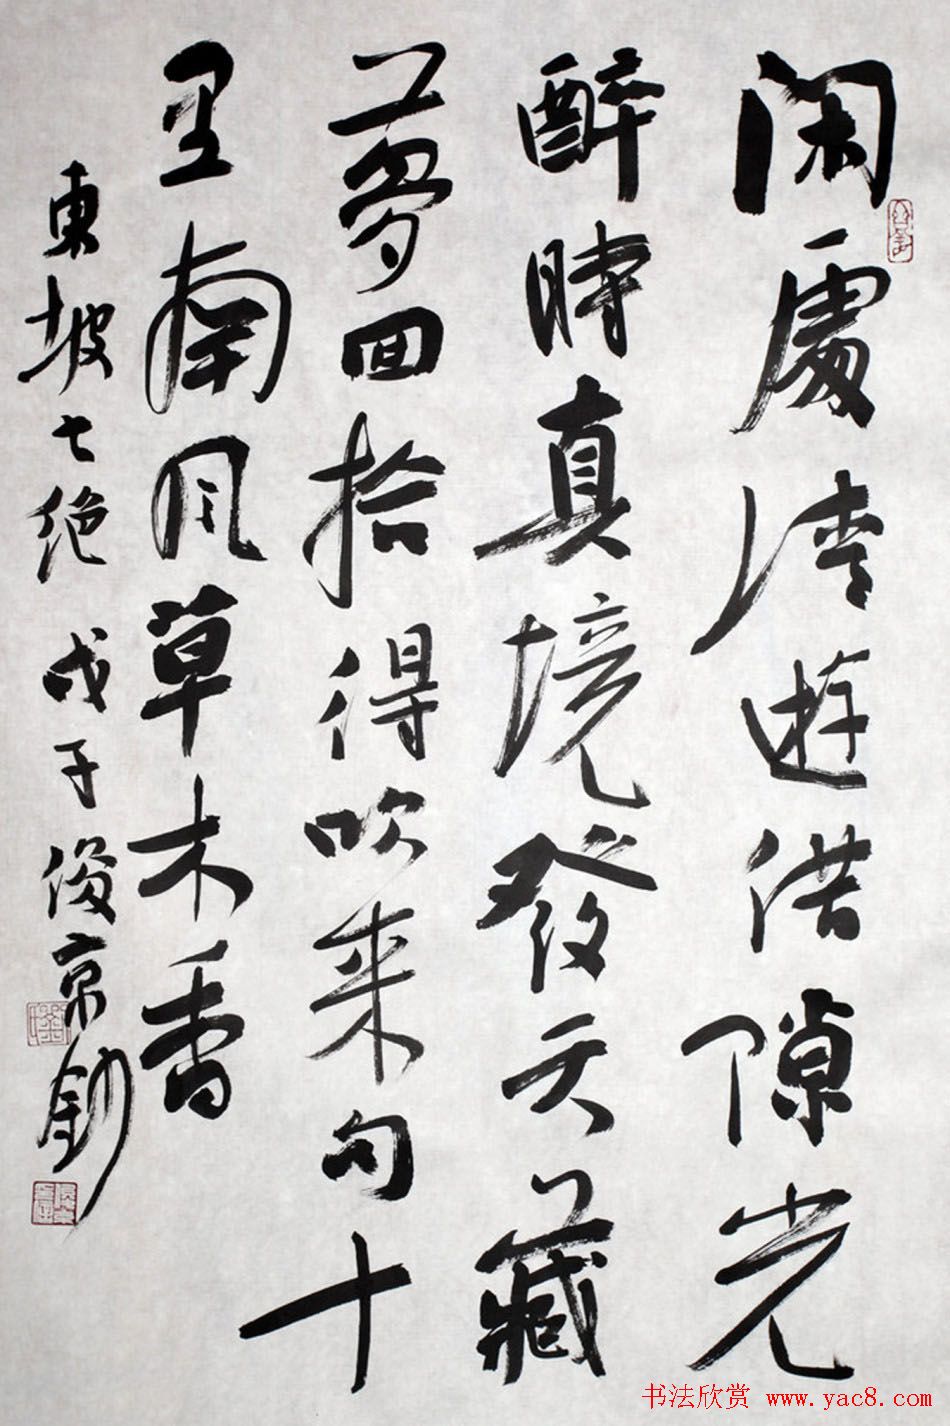 闲處清遊借隙光
醉時真境發天藏
夢回拾得吹来句十
里南风草木香
東坡七绝 戊子俊京钞
书法欣赏 www.yac8.com